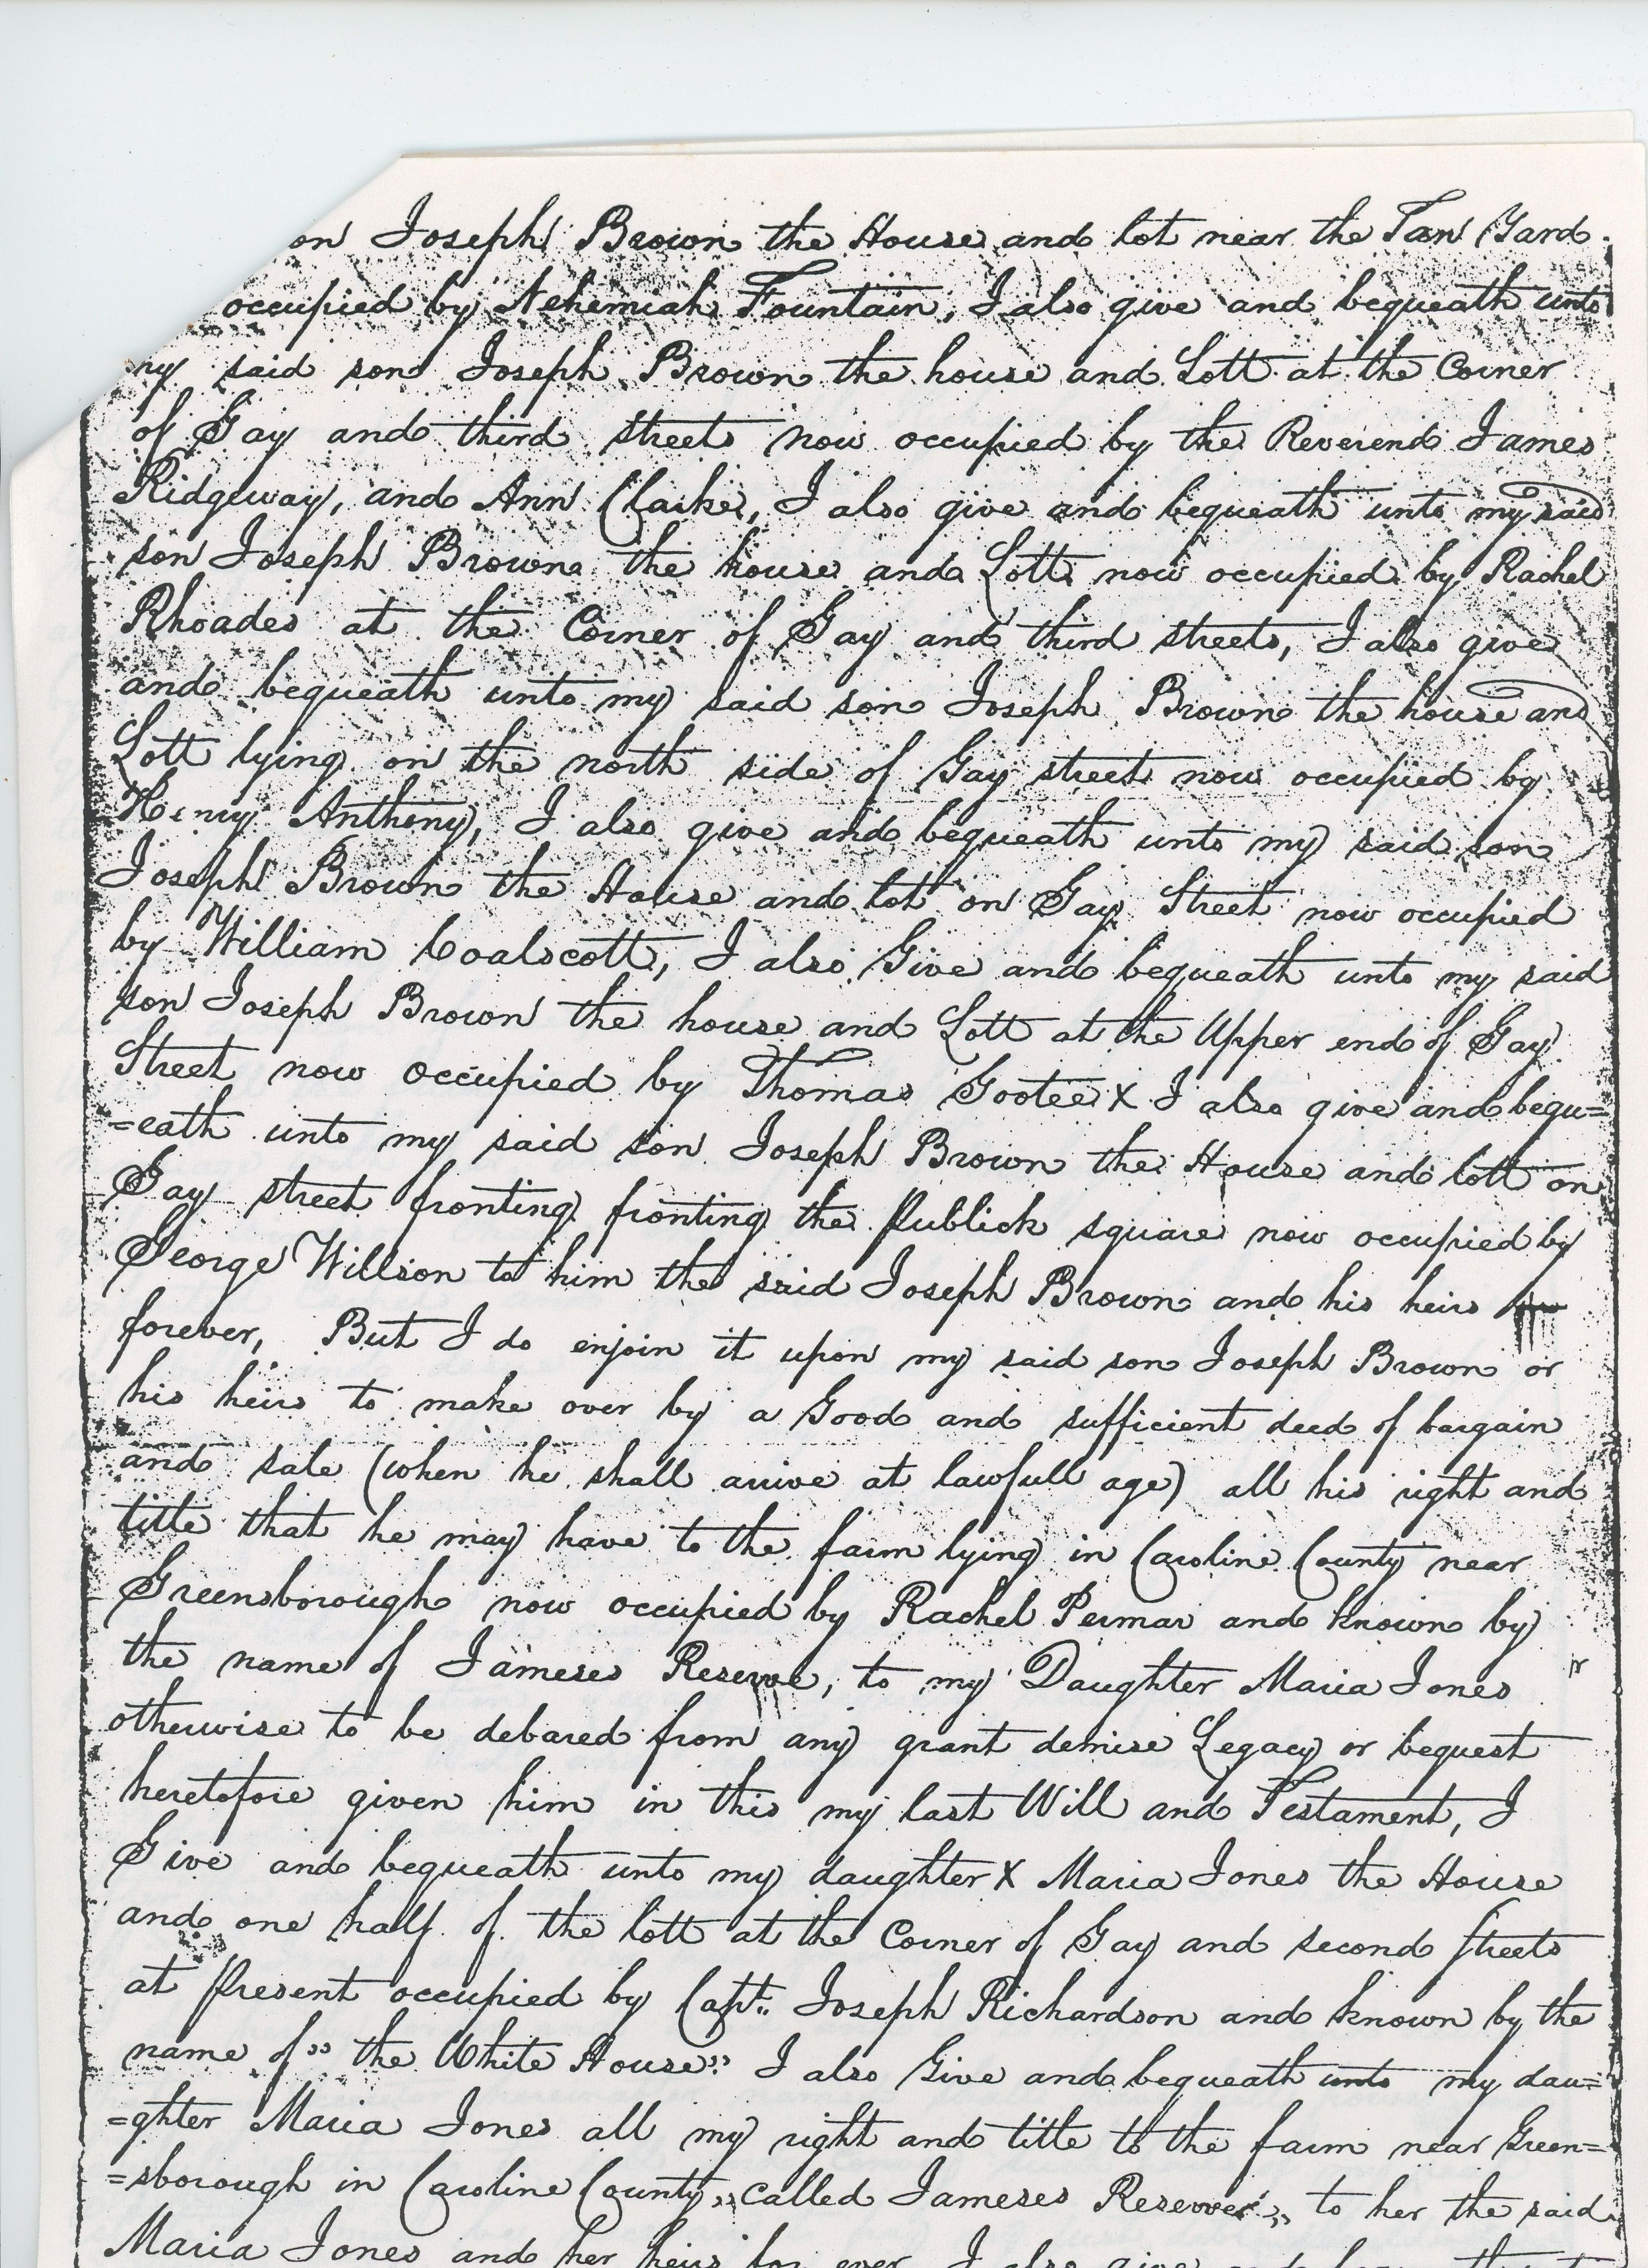 on Joseph Brown the House and lot near the Tan Yard
occupied by Nehemiah Fountain, I also give and bequeath unto
my said son Joseph Brown the house and Lott at the Corner
of Gay and third streets now occupied by the Reverend James
Ridgeway, and Ann Clarke, I also give and bequeath unto my said
son Joseph Brown the house and Lott now occupied by Rachel
Rhoades at the Corner of Gay and third streets, I also give
and bequeath unto my said son Joseph Brown the house and
Lott lying on the north side of Gay street now occupied by
Henry Anthony, I also give and bequeath unto my said son
Joseph Brown the House and lot on Gay Street now occupied
by William Coalscott, I also Give and bequeath unto my said
son Joseph Brown the house and Lott at the Upper end of Gay
Street now occupied by Thomas Gootee x I also give and bequ=
=eath unto my said son Joseph Brown the House and lott on
Gay street fronting fronting the Publick square now occupied by
George Willson to him the said Joseph Brown and his heirs
forever, But I do enjoin it upon my said son Joseph Brown or
his heirs to make over by a Good and sufficient deed of bargain
and sale (when he shall arrive at lawfull age) all his right and
title that he may have to the farm lying in Caroline County near
Greensborough now occupied by Rachel Permar and known by
the name of Jameses Reserve, to my Daughter Maria Jones
otherwise to be debared from any grant demise Legacy or bequest
heretofore given him in this my last Will and Testament, I
Give and bequeath unto my daughter x Maria Jones the House
and one half of the lott at the Corner of Gay and second streets
at Present occupied by Capt. Joseph Richardson and known by the
name of " the White House" I also Give and bequeath unto my dau=
=ghter Maria Jones all my right and title to the farm near Green=
=sborough in Caroline County " called Jameses Reserve " to her the said
Maria Jones and her heirs for ever I also give